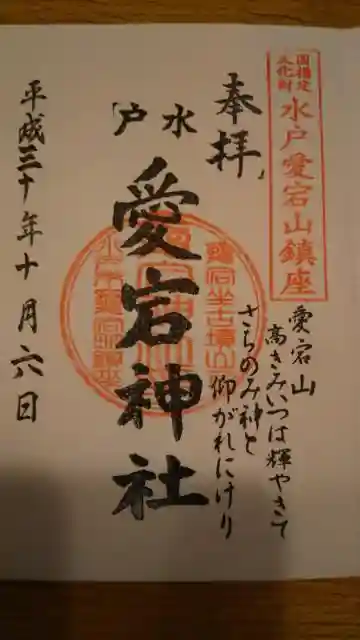 国指定
文化財
水戸愛宕山鎮座
奉拝
愛宕山
高きみいつは輝やきて
さちのみ神と
仰がれにけり
水戸
愛宕神社
平成三十年十月六日